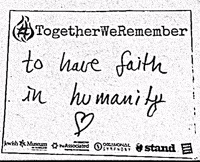 #TogetherWeRemember
to have faith
in humanity
Jewish Museum
The Associated
SYMPHONY
stand